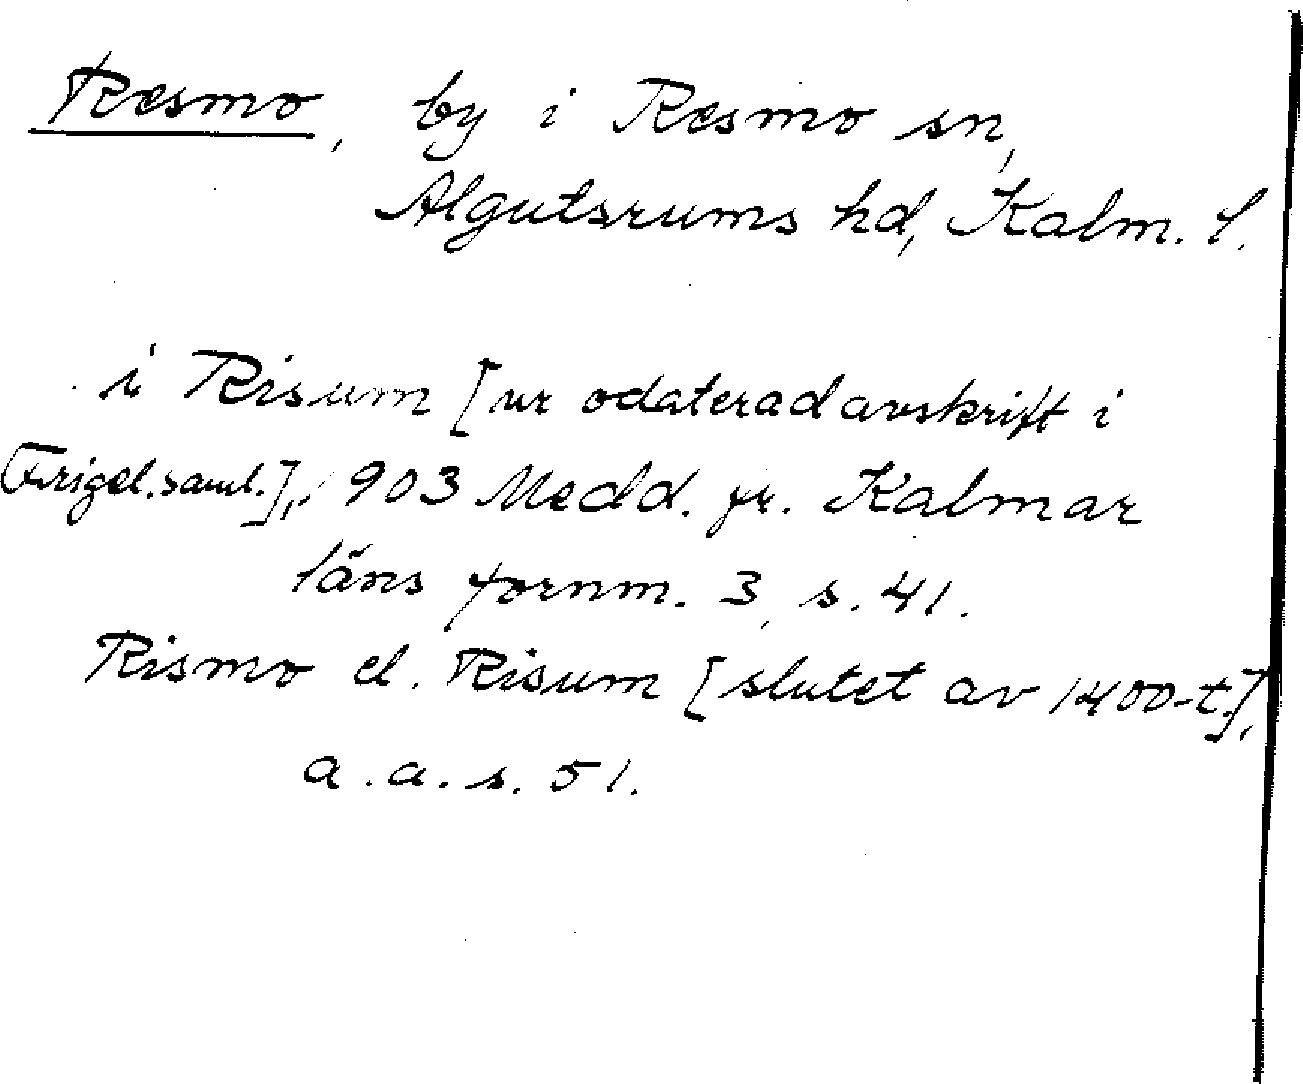 Resmo, by i Resmo sn,
Algutsrums hd, Kalm. l.
i Risum [ur odaterad avskrift i
Frigel. saml.], 903 Medd. fr. Kalmar
läns fornm. 3, s. 41.
Rismo el. Risum [slutet av 1400-t.],
a. a. s. 51.